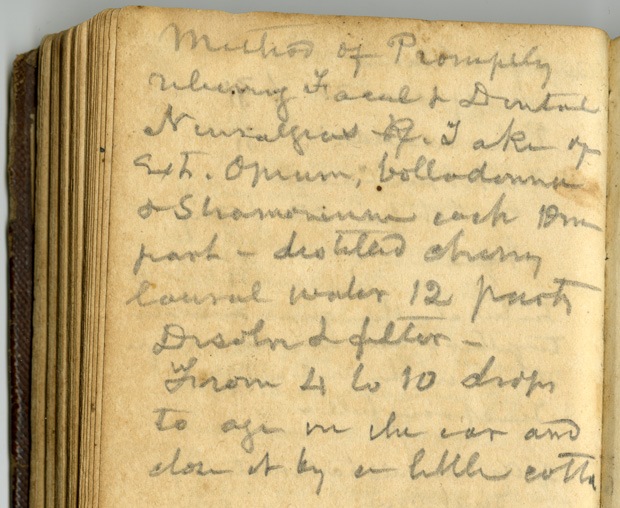 Method of Promptly
relieving Facial & Dental
Neuralgias Rx. Take of
Ext. Opium, bolladonna
& Stramonium each
part - distilled cherry
laural water 12 parts
Dissolve & filter -
From 4 to 10 drops
to age in the ear and
close it by a little cotto